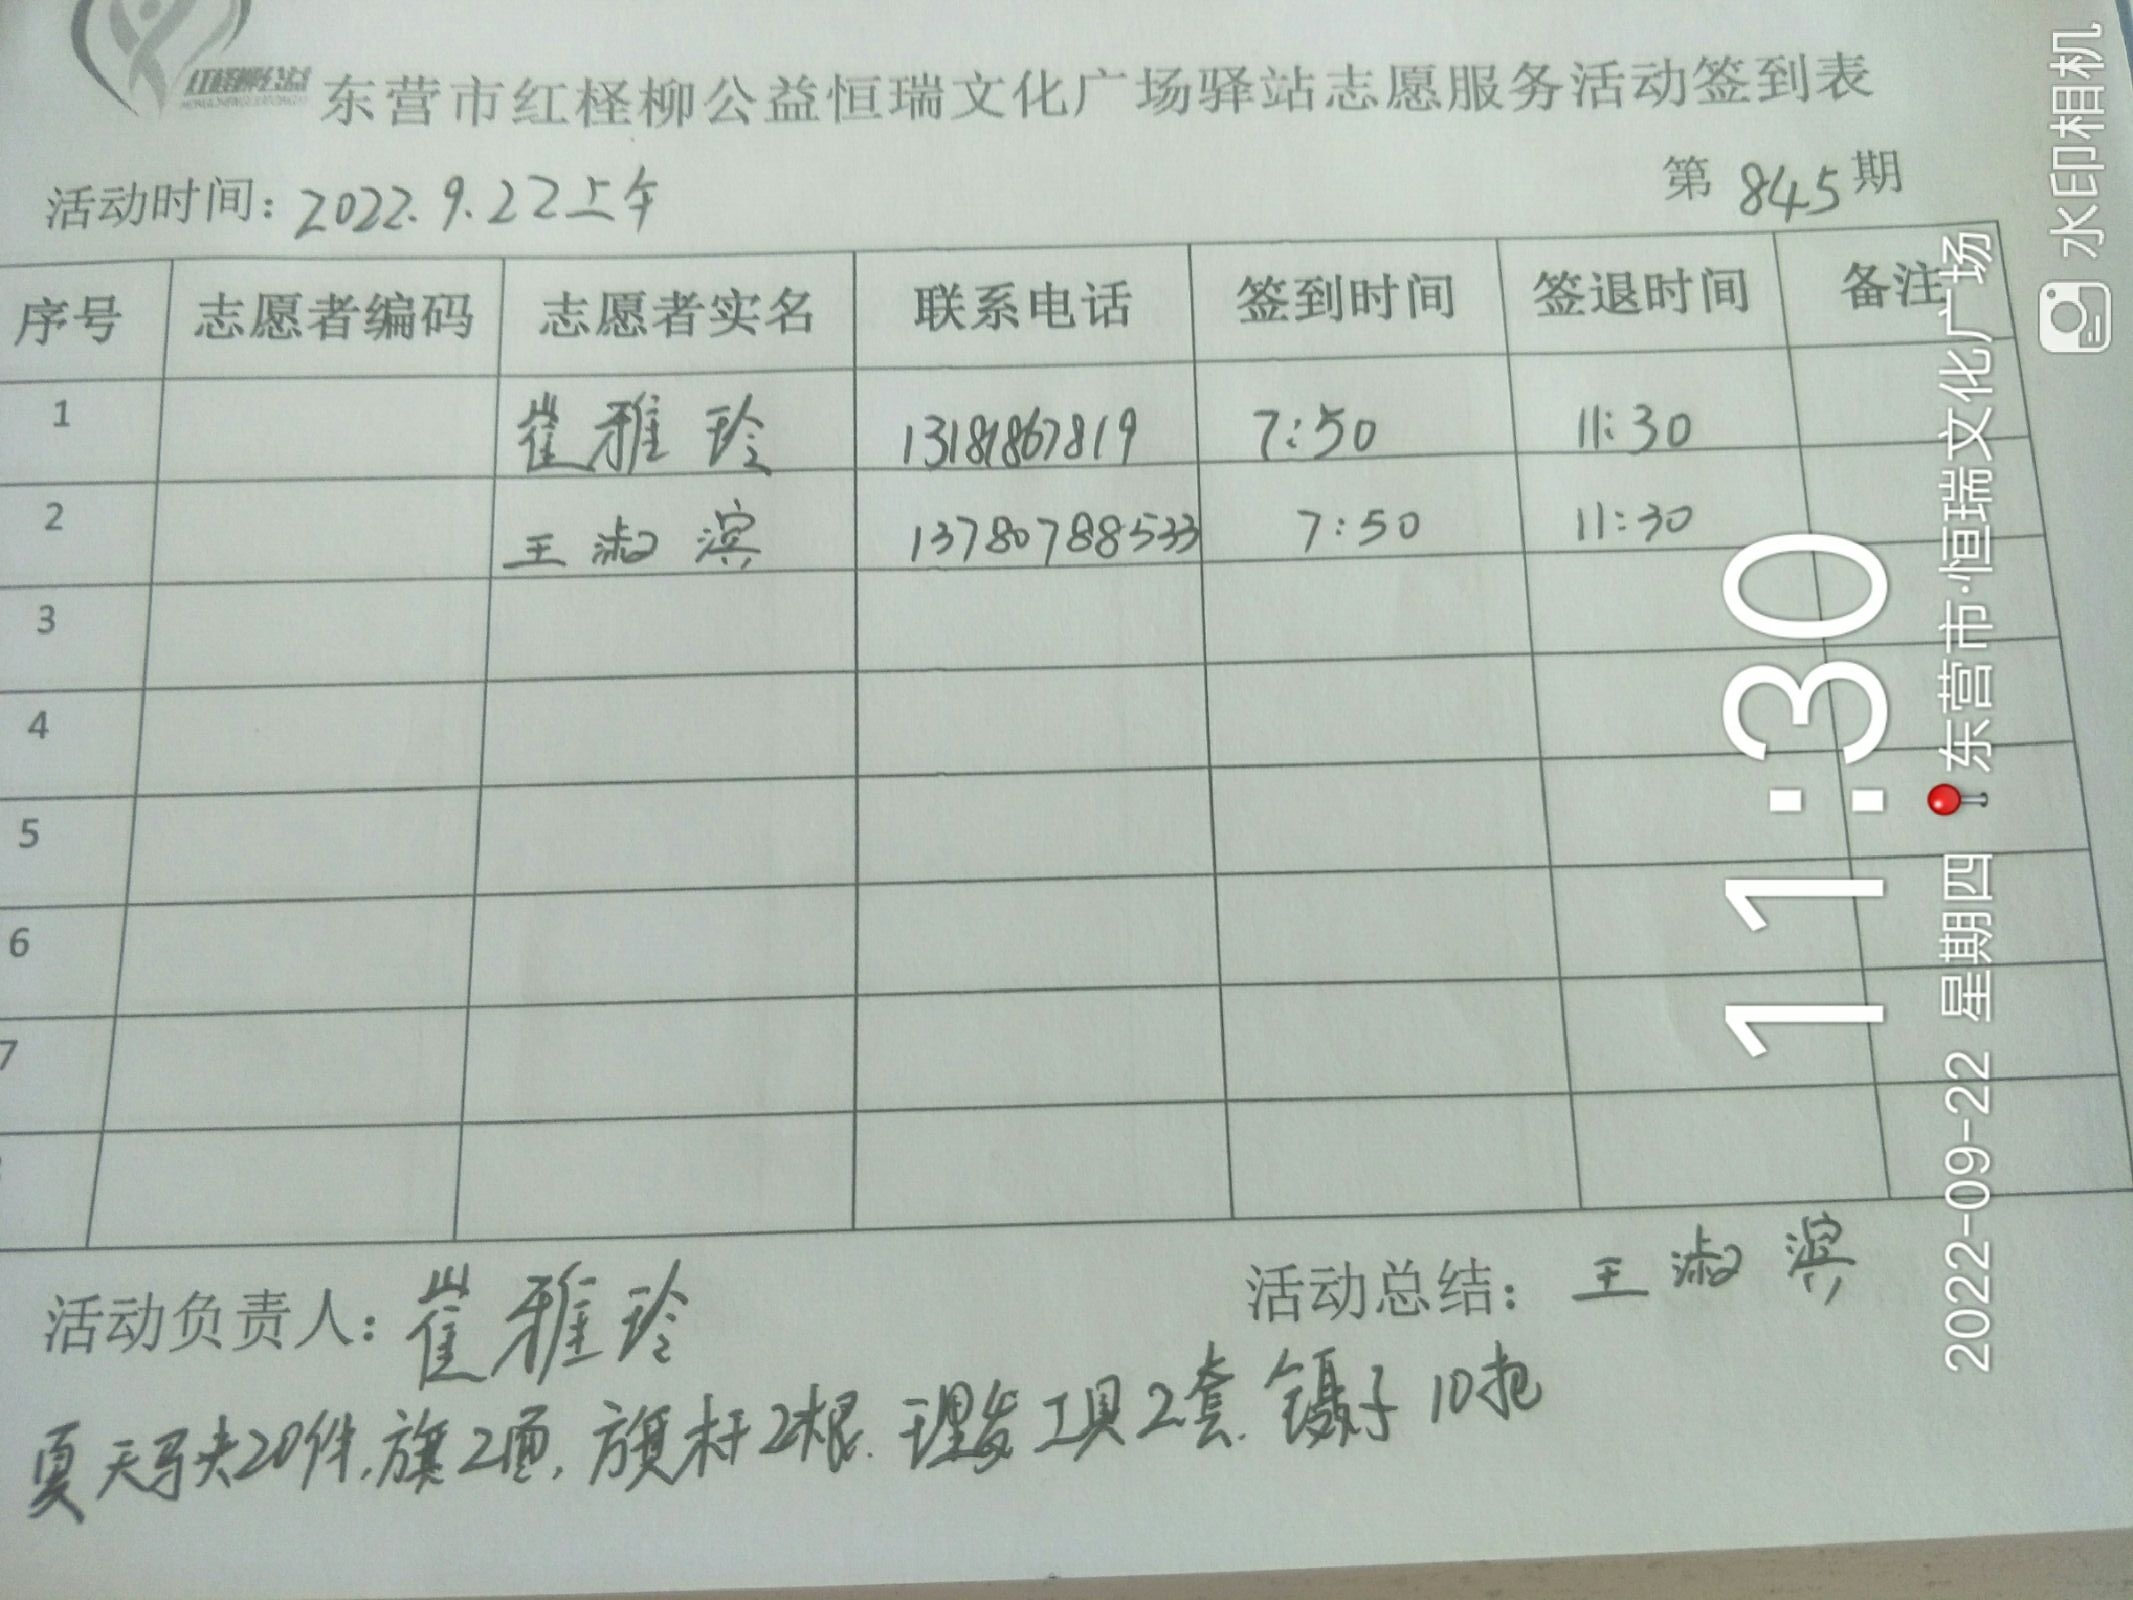 红柽柳公益
东营市红柽柳公益恒瑞文化广场驿站志愿服务活动签到表
活动时间：2022.9.22上午 第 845 期
序号 志愿者编码 志愿者实名 联系电话 签到时间 签退时间 备注
1 崔雅玲 13181867819 7:50 11:30
2 王淑滨 13780788533 7:50 11:30
3
4
5
6
7
活动负责人：崔雅玲 活动总结：王淑滨
夏天马夹20件,旗2面,旗杆2根.理发工具2套.镊子10把
11:30
2022-09-22 星期四 东营市·恒瑞文化广场
水印相机